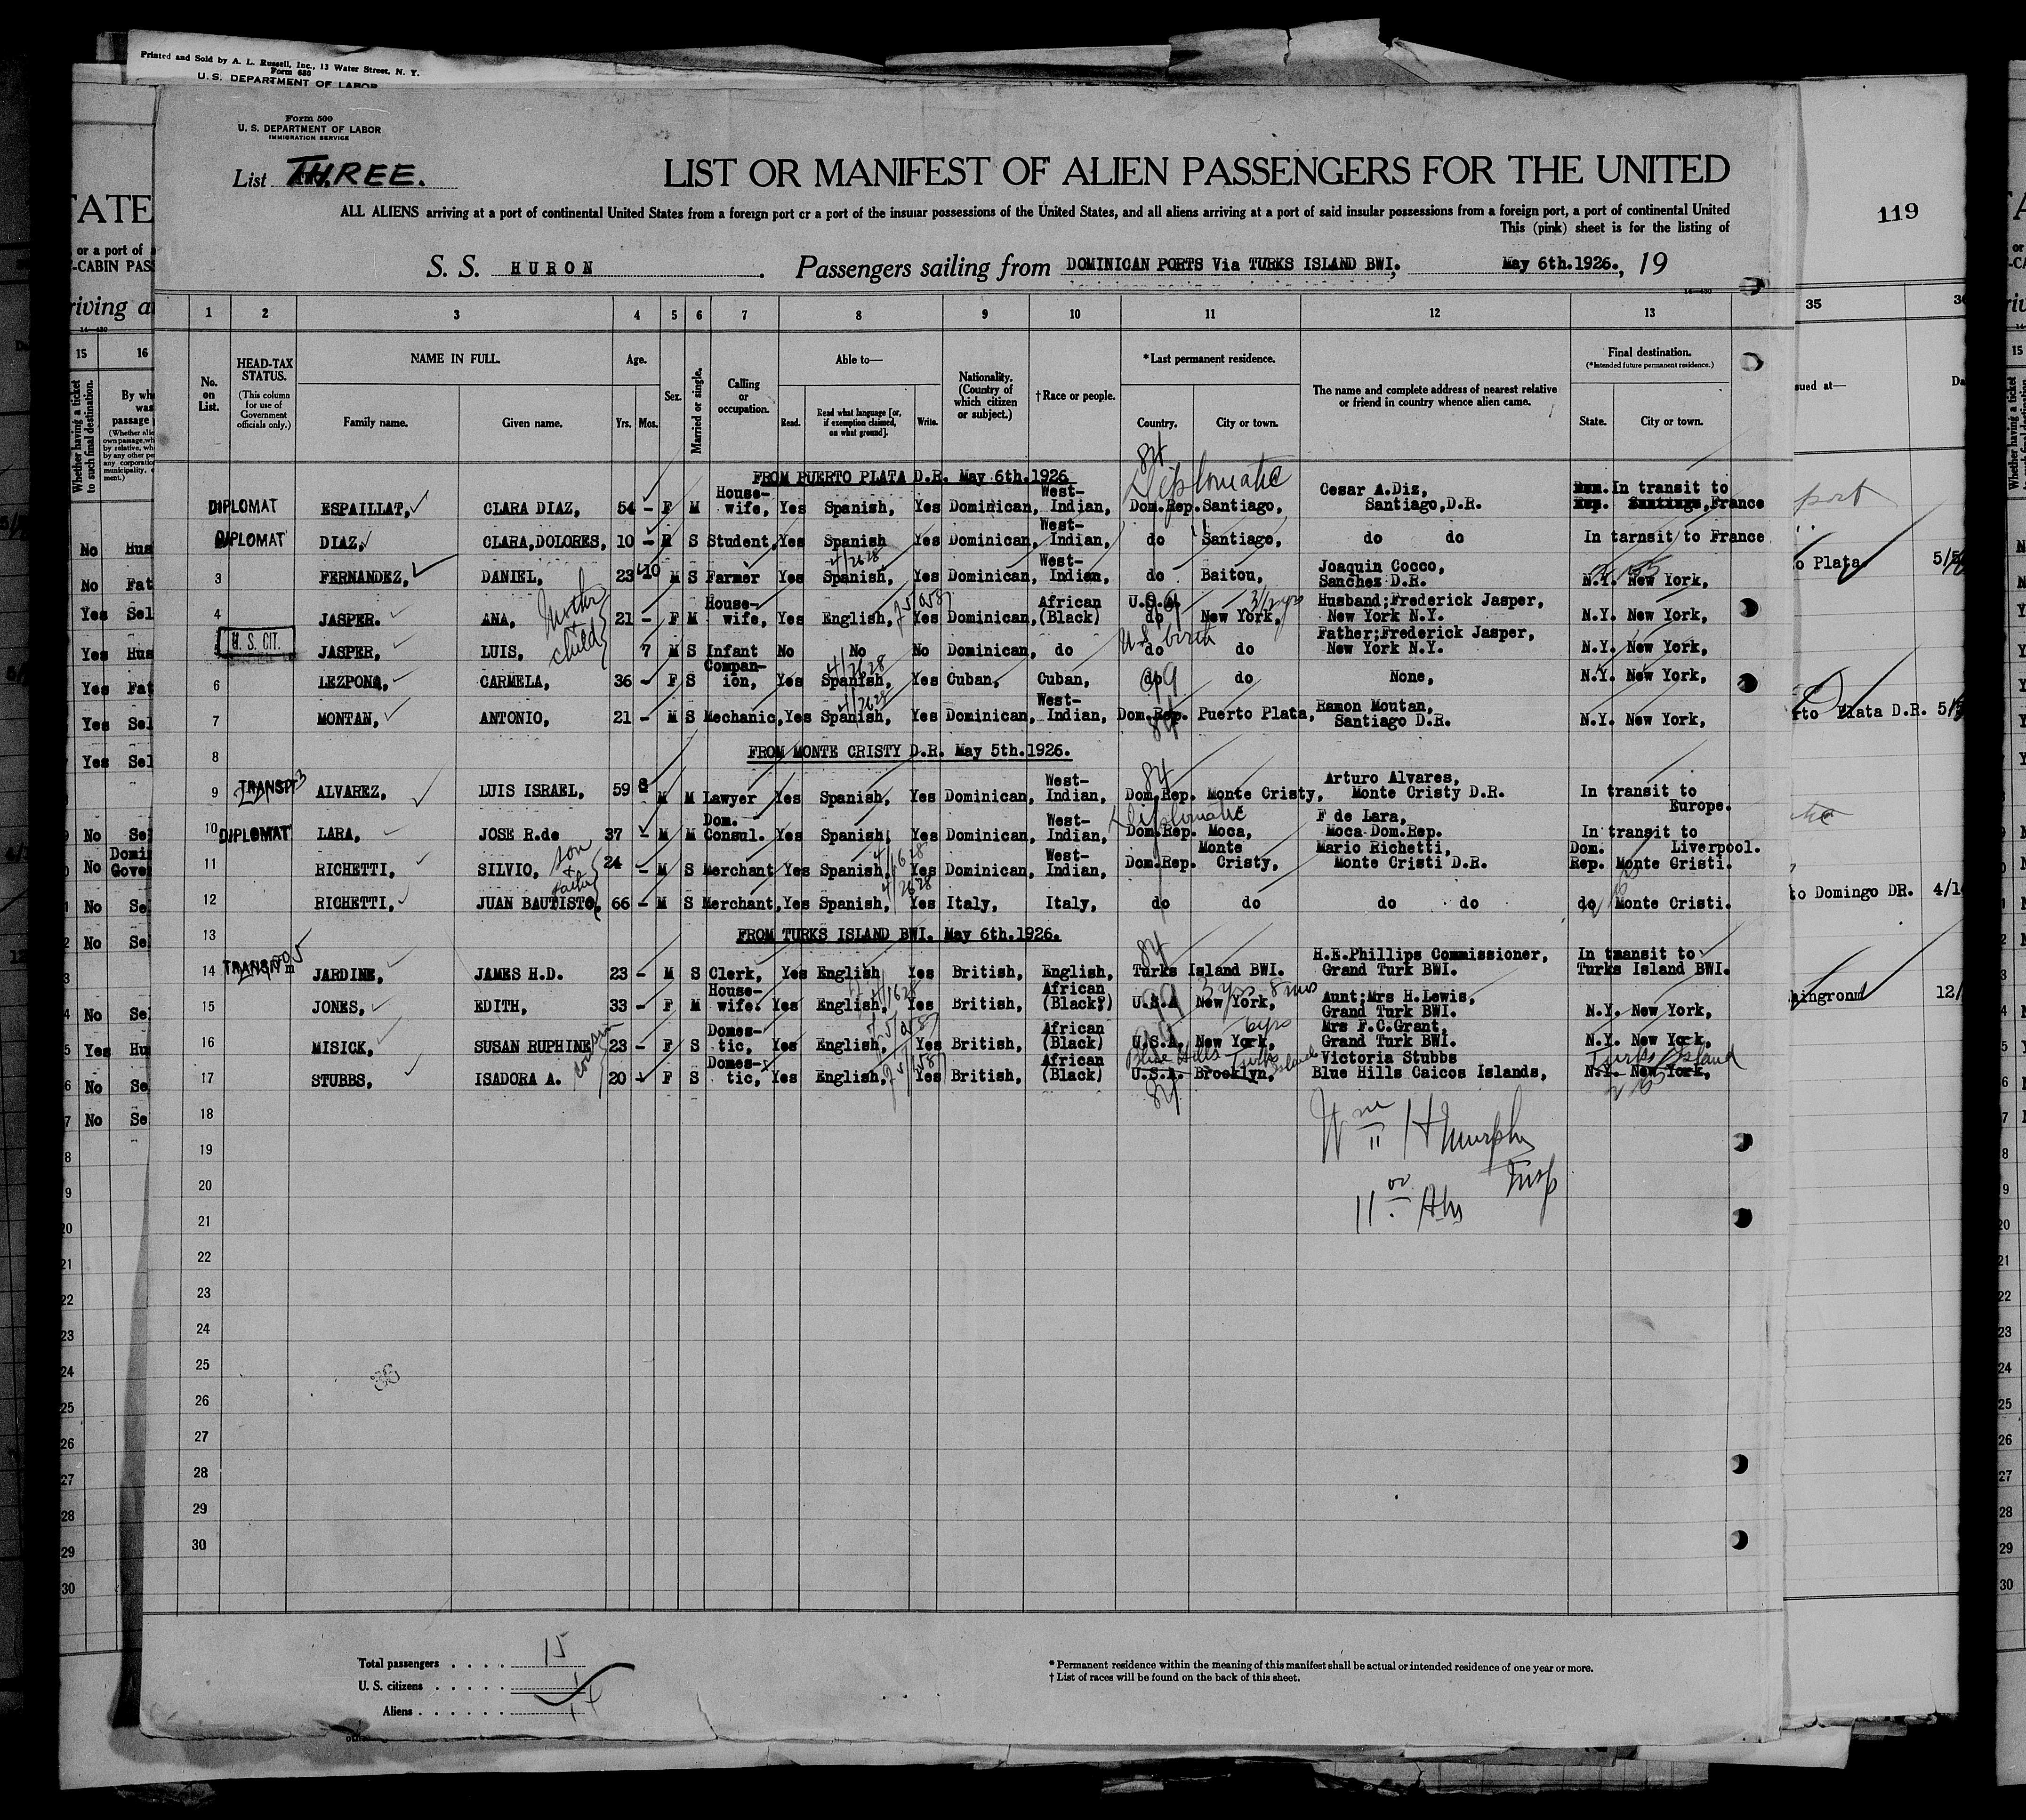 Printed and Sold by A. L. Russell, Inc., 13 Water Street, N. Y.
Form 680
U. S. DEPARTMENT OF LABOR
Form 500
U. S. DEPARTMENT OF LABOR
IMMIGRATION SERVICE
List THREE.
LIST OR MANIFEST OF ALIEN PASSENGERS FOR THE UNITED
ALL ALIENS arriving at a port of continental United States from a foreign port or a port of the insular possessions of the United States, and all aliens arriving at a port of said insular possessions from a foreign port, a port of continental United
This (pink) sheet is for the listing of
119
S. S. HURON. Passengers sailing from DOMINICAN PORTS Via TURKS ISLAND BWI., May 6th.1926., 19
1 2 3 4 5 6 7 8 9 10 11 12 13
No. on List.
HEAD-TAX STATUS.
(This column for use of Government officials only.)
NAME IN FULL.
Family name. Given name.
Age.
Yrs. Mos.
Sex.
Married or single.
Calling or occupation.
Able to—
Read. Read what language [or, if exemption claimed, on what ground]. Write.
Nationality. (Country of which citizen or subject.)
† Race or people.
*Last permanent residence.
Country. City or town.
The name and complete address of nearest relative or friend in country whence alien came.
Final destination.
(*Intended future permanent residence.)
State. City or town.
FROM PUERTO PLATA D.R. May 6th.1926
DIPLOMAT ESPAILLAT, CLARA DIAZ, 54 - F M House-wife, Yes Spanish, Yes Dominican, West-Indian, Diplomatic Dom.Rep. Santiago, Cesar A.Diz, Santiago,D.R. In transit to France
DIPLOMAT DIAZ, CLARA,DOLORES, 10 - S Student, Yes Spanish Yes Dominican, West-Indian, do Santiago, do do In tarnsit to France
3 FERNANDEZ, DANIEL, 23 10 M S Farmer Yes Spanish, 4/2628 Yes Dominican, West-Indian, do Baitou, Joaquin Cocco, Sanchez D.R. N.Y. New York,
4 JASPER. ANA, Mother 21 - F M House-wife, Yes English, Yes Dominican, African (Black) U.S.A. do New York, Husband;Frederick Jasper, New York N.Y. N.Y. New York,
5 U. S. CIT. JASPER, LUIS, child 7 M S Infant No No No Dominican, do U.S. birth do do Father;Frederick Jasper, New York N.Y. N.Y. New York,
6 LEZPONA, CARMELA, 36 - F S Compan-ion, Yes Spanish, 4/2628 Yes Cuban, Cuban, do 99 do None, N.Y. New York,
7 MONTAN, ANTONIO, 21 - M S Mechanic, Yes Spanish, 4/2628 Yes Dominican, West-Indian, Dom.Rep. 84 Puerto Plata, Ramon Moutan, Santiago D.R. N.Y. New York,
8 FROM MONTE CRISTY D.R. May 5th.1926.
9 TRANSIT ALVAREZ, LUIS ISRAEL, 59 8 M M Lawyer Yes Spanish, Yes Dominican, West-Indian, 84 Dom.Rep. Monte Cristy, Arturo Alvares, Monte Cristy D.R. In transit to Europe.
10 DIPLOMAT LARA, JOSE R.de 37 - M M Dom. Consul. Yes Spanish, Yes Dominican, West-Indian, Diplomatic Dom.Rep. Moca, F de Lara, Moca Dom.Rep. In transit to Liverpool.
11 RICHETTI, SILVIO, son 24 - M S Merchant Yes Spanish, Yes Dominican, West-Indian, Dom.Rep. Monte Cristy, Mario Richetti, Monte Cristi D.R. Dom. Rep. Monte Cristi.
12 RICHETTI, JUAN BAUTISTO, father 66 - M S Merchant, Yes Spanish, 4/2628 Yes Italy, Italy, do do do do do Monte Cristi.
13 FROM TURKS ISLAND BWI. May 6th.1926.
14 TRANSIT JARDINE, JAMES H.D. 23 - M S Clerk, Yes English Yes British, English, 84 Turks Island BWI. H.E.Phillips Commissioner, Grand Turk BWI. In transit to Turks Island BWI.
15 JONES, EDITH, 33 - F M House-wife. Yes English, Yes British, African (Black?) U.S.A 99 3 yrs 8 mos New York, Aunt;Mrs H.Lewis, Grand Turk BWI. N.Y. New York,
16 MISICK, SUSAN RUPHINE 23 - F S Domes-tic, Yes English, Yes British, African (Black) U.S.A. 99 6 yrs New York, Mrs F.C.Grant, Grand Turk BWI. N.Y. New York,
17 STUBBS, ISADORA A. cousin 20 F S Domes-tic, Yes English, Yes British, African (Black) Blue Hills Turks Islands U.S.A. Brooklyn, 84 Victoria Stubbs Blue Hills Caicos Islands, Turks Island N.Y. New York,
18 Wm H Murphy
19 Insp
20 11 00 Am
21
22
23
24
25
26
27
28
29
30
Total passengers 15
U. S. citizens 1
Aliens 14
* Permanent residence within the meaning of this manifest shall be actual or intended residence of one year or more.
† List of races will be found on the back of this sheet.